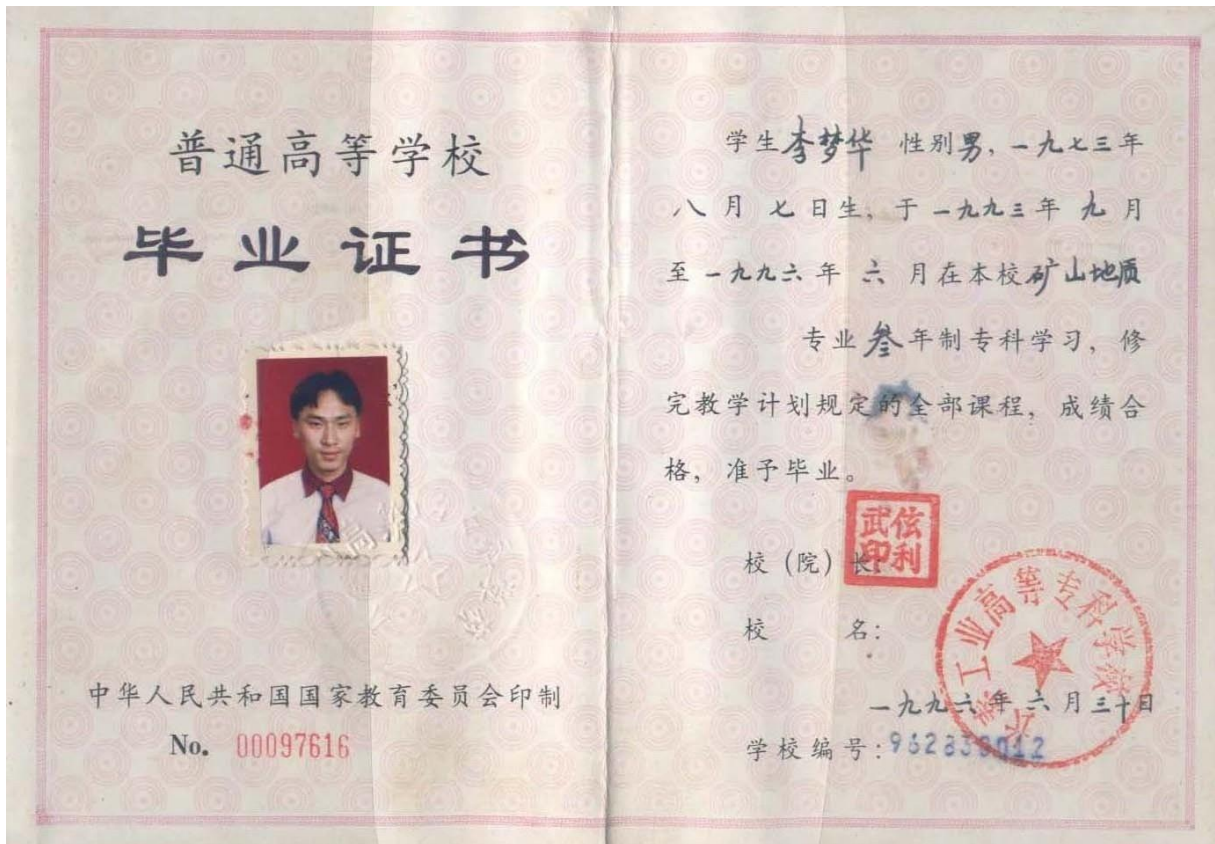 普通高等学校
毕业证书
中华人民共和国国家教育委员会印制
No. 00097616
学生李梦华 性别男,一九七三年
八月七日生,于一九九三年九月
至一九九六年六月在本校矿山地质
专业叁年制专科学习,修
完教学计划规定的全部课程,成绩合
格,准予毕业。
校(院)长:
武弦利印
校名:
工业高等专科学校
一九九六年六月三十日
学校编号: